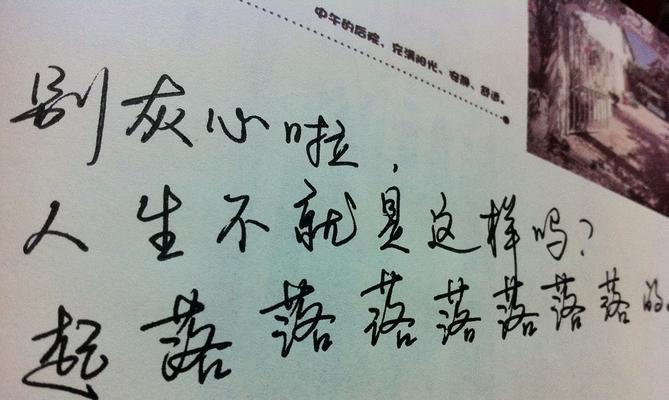 中午的后院，充满阳光、安静、舒适。
别灰心啦，
人生不就是这样吗？
起落落落落落落落的。